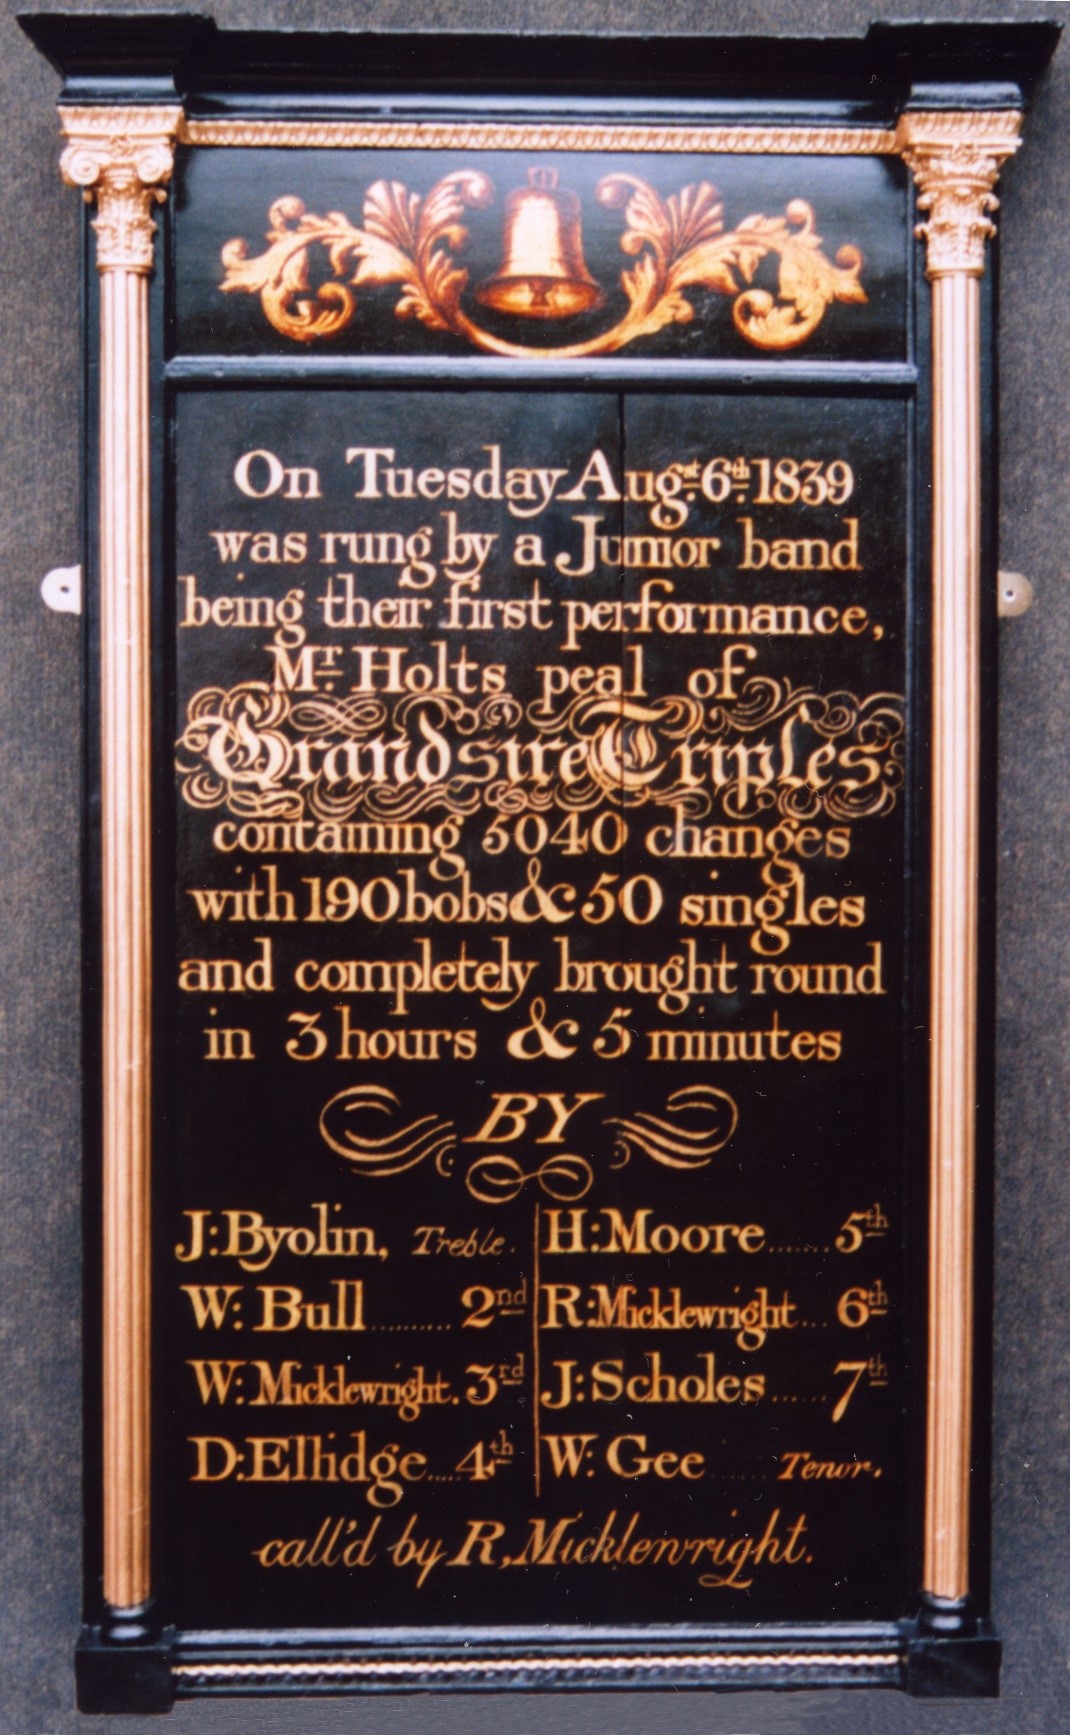 On Tuesday Augst 6th 1839
was rung by a Junior band
being their first performance,
Mr Holts peal of
Grandsire Triples
containing 5040 changes
with 190 bobs & 50 singles
and completely brought round
in 3 hours & 5 minutes
BY
J: Byolin, Treble.
W: Bull .......... 2nd
W: Micklewright. 3rd
D: Ellidge .... 4th
H: Moore ....... 5th
R: Micklewright ... 6th
J: Scholes ...... 7th
W: Gee ...... Tenor.
call'd by R, Micklewright.